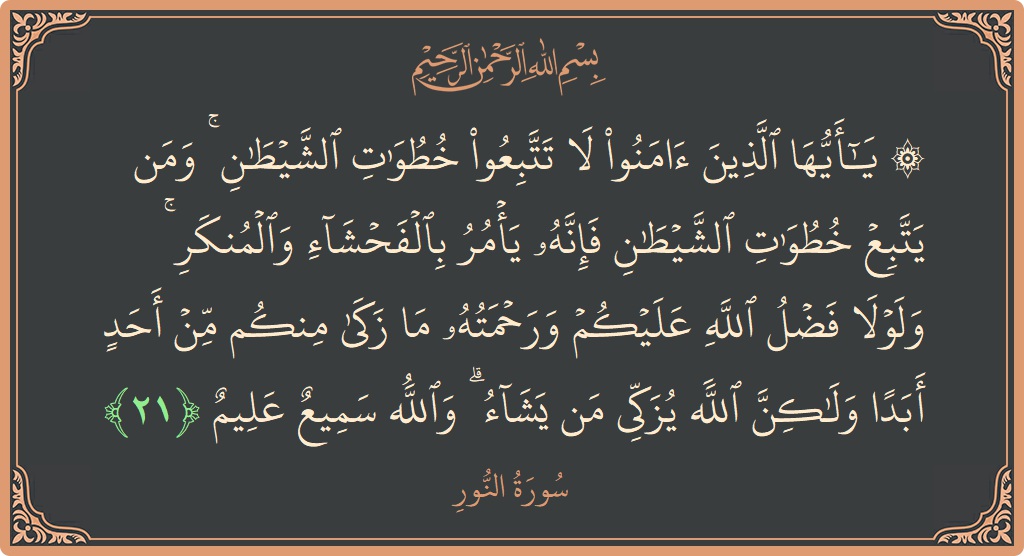 بِسْمِ اللَّهِ الرَّحْمَٰنِ الرَّحِيمِ
۞ يَـٰٓأَيُّهَا ٱلَّذِينَ ءَامَنُوا۟ لَا تَتَّبِعُوا۟ خُطُوَٰتِ ٱلشَّيْطَـٰنِ ۚ وَمَن
يَتَّبِعْ خُطُوَٰتِ ٱلشَّيْطَـٰنِ فَإِنَّهُۥ يَأْمُرُ بِٱلْفَحْشَآءِ وَٱلْمُنكَرِ ۚ
وَلَوْلَا فَضْلُ ٱللَّهِ عَلَيْكُمْ وَرَحْمَتُهُۥ مَا زَكَىٰ مِنكُم مِّنْ أَحَدٍ
أَبَدًا وَلَـٰكِنَّ ٱللَّهَ يُزَكِّى مَن يَشَآءُ ۗ وَٱللَّهُ سَمِيعٌ عَلِيمٌ ﴿٢١﴾
سُورَةُ النُّورِ